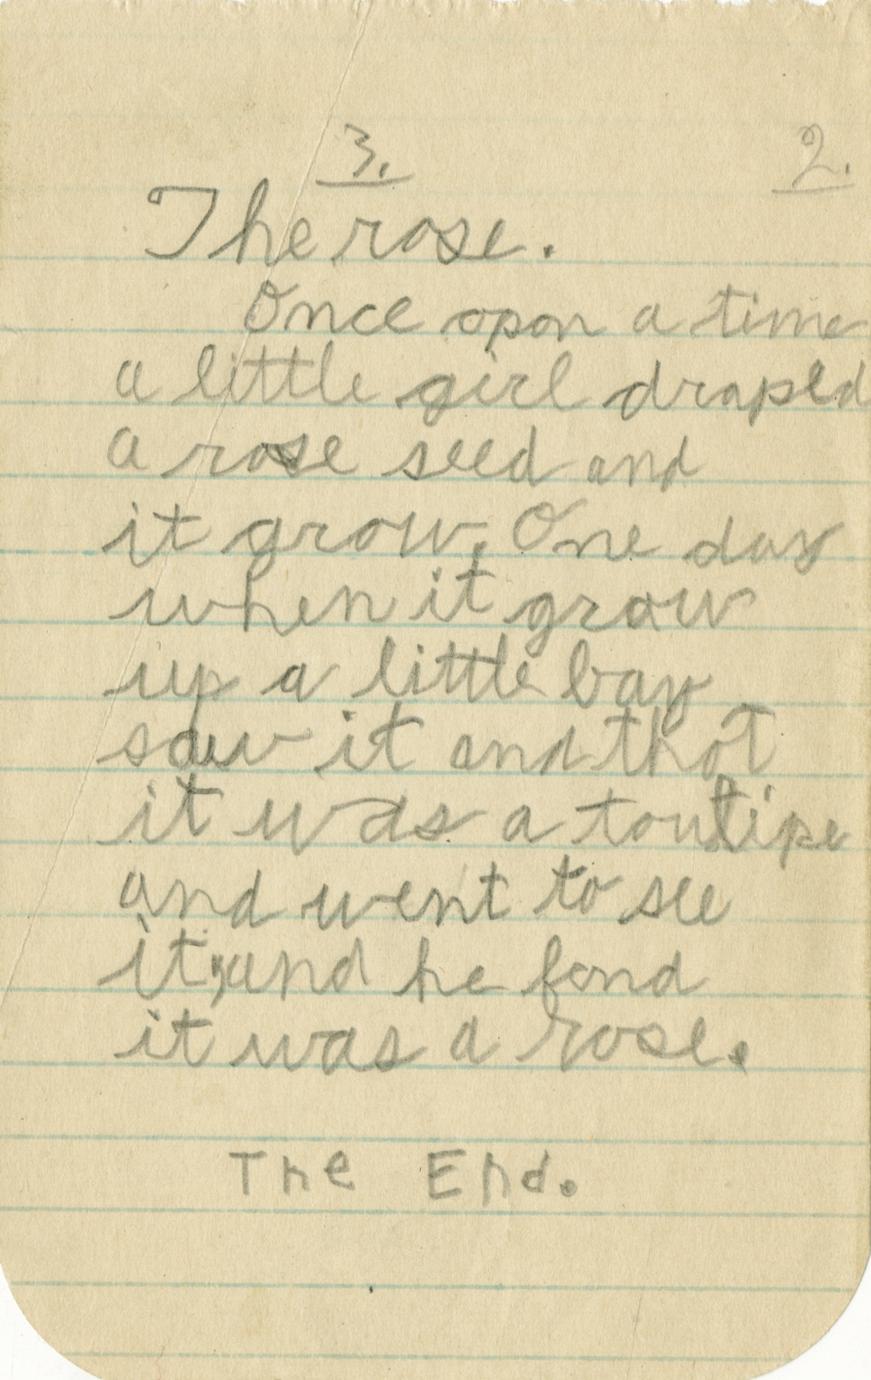 3. 2.
The rose.
Once upon a time
a little girl draped
a rose seed and
it grow. One day
when it grow
up a little boy
saw it and thot
it was a toulipe
and went to see
it, and he fond
it was a rose.
The End.